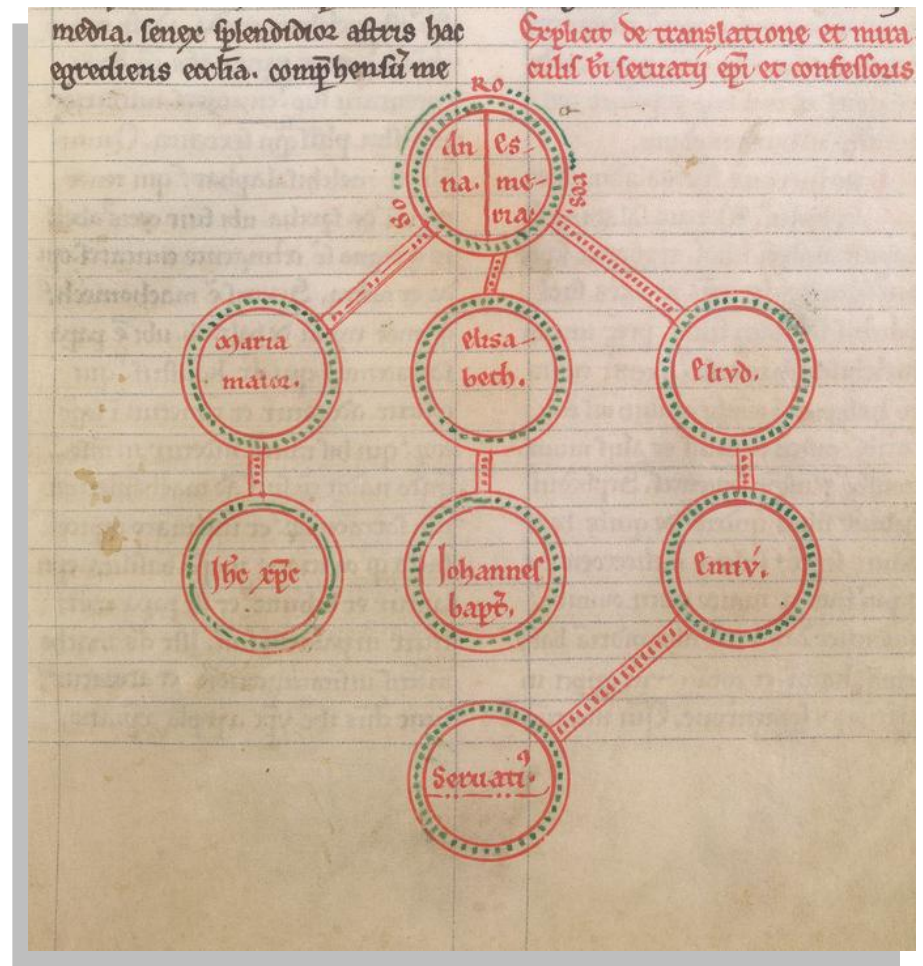 media. senex splendidior astris hac
egrediens ecclia. comp̄hensū me
Explicit de translatione et mira
culis bī seruatij ep̄i et confessoris
so ro res.
an es-
na. me-
ria
maria
maior.
elisa-
beth.
eliud.
Jhc xp̄c
Johannes
bapt̄.
emiu.
Seruatiꝰ